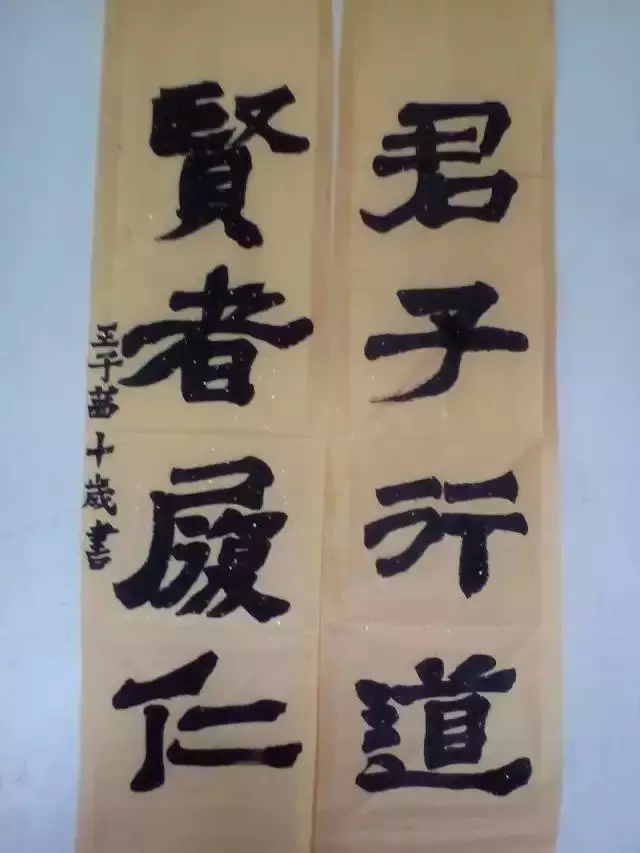 君子行道
賢者履仁
王子苗十歲書